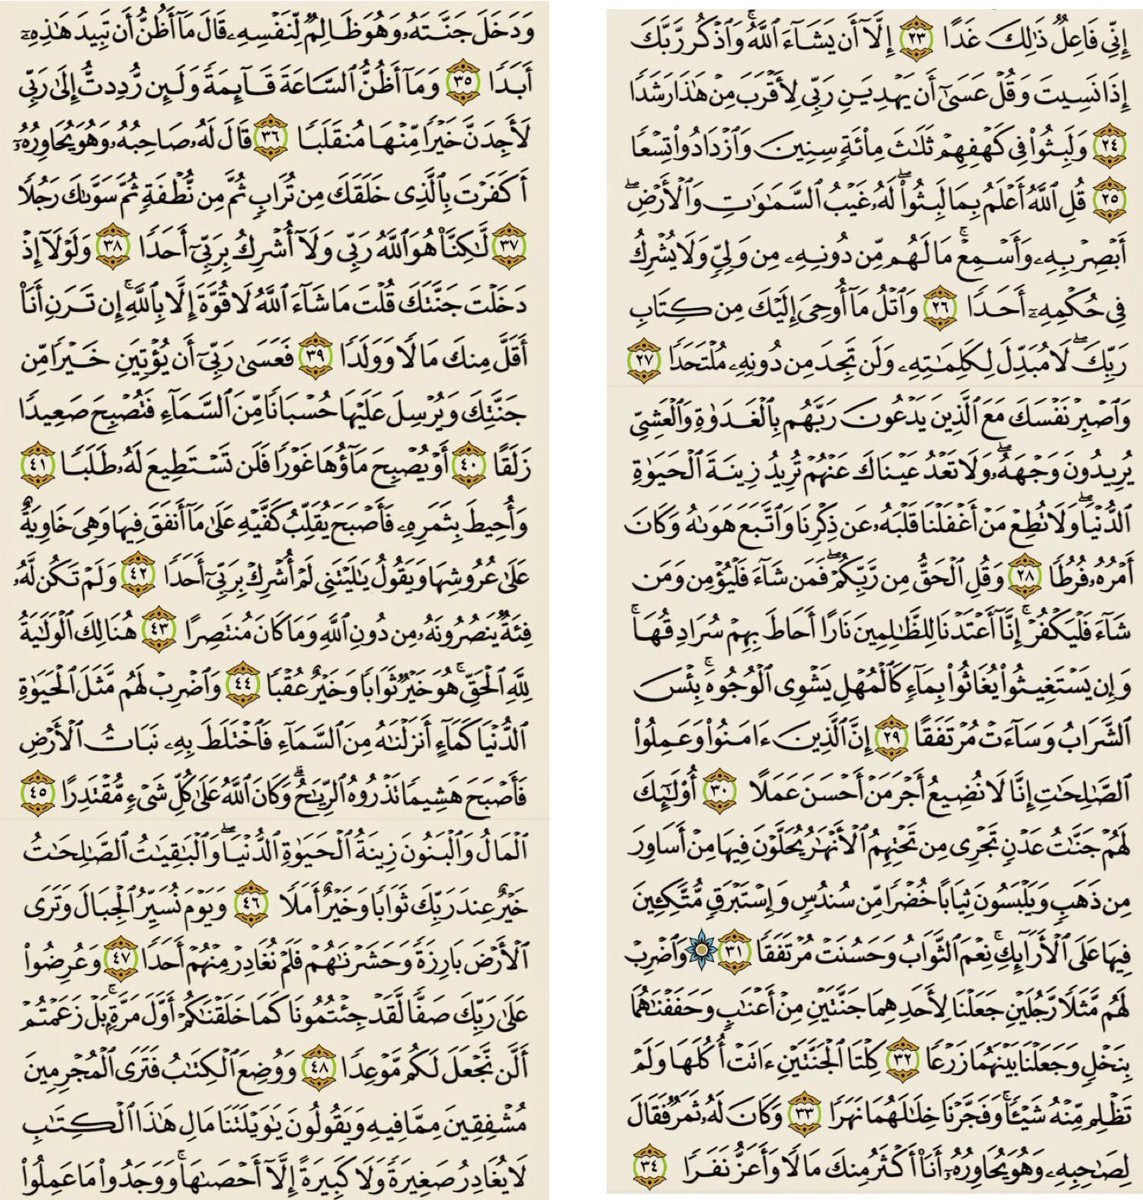 إِنِّي فَاعِلٌ ذَٰلِكَ غَدًا ٢٣ إِلَّآ أَن يَشَآءَ ٱللَّهُۚ وَٱذۡكُر رَّبَّكَ
إِذَا نَسِيتَ وَقُلۡ عَسَىٰٓ أَن يَهۡدِيَنِ رَبِّي لِأَقۡرَبَ مِنۡ هَٰذَا رَشَدٗا
٢٤ وَلَبِثُواْ فِي كَهۡفِهِمۡ ثَلَٰثَ مِاْئَةٖ سِنِينَ وَٱزۡدَادُواْ تِسۡعٗا
٢٥ قُلِ ٱللَّهُ أَعۡلَمُ بِمَا لَبِثُواْۖ لَهُۥ غَيۡبُ ٱلسَّمَٰوَٰتِ وَٱلۡأَرۡضِۖ
أَبۡصِرۡ بِهِۦ وَأَسۡمِعۡۚ مَا لَهُم مِّن دُونِهِۦ مِن وَلِيّٖ وَلَا يُشۡرِكُ
فِي حُكۡمِهِۦٓ أَحَدٗا ٢٦ وَٱتۡلُ مَآ أُوحِيَ إِلَيۡكَ مِن كِتَابِ
رَبِّكَۖ لَا مُبَدِّلَ لِكَلِمَٰتِهِۦ وَلَن تَجِدَ مِن دُونِهِۦ مُلۡتَحَدٗا ٢٧
وَٱصۡبِرۡ نَفۡسَكَ مَعَ ٱلَّذِينَ يَدۡعُونَ رَبَّهُم بِٱلۡغَدَوٰةِ وَٱلۡعَشِيِّ
يُرِيدُونَ وَجۡهَهُۥۖ وَلَا تَعۡدُ عَيۡنَاكَ عَنۡهُمۡ تُرِيدُ زِينَةَ ٱلۡحَيَوٰةِ
ٱلدُّنۡيَاۖ وَلَا تُطِعۡ مَنۡ أَغۡفَلۡنَا قَلۡبَهُۥ عَن ذِكۡرِنَا وَٱتَّبَعَ هَوَىٰهُ وَكَانَ
أَمۡرُهُۥ فُرُطٗا ٢٨ وَقُلِ ٱلۡحَقُّ مِن رَّبِّكُمۡۖ فَمَن شَآءَ فَلۡيُؤۡمِن وَمَن
شَآءَ فَلۡيَكۡفُرۡۚ إِنَّآ أَعۡتَدۡنَا لِلظَّٰلِمِينَ نَارًا أَحَاطَ بِهِمۡ سُرَادِقُهَاۚ
وَإِن يَسۡتَغِيثُواْ يُغَاثُواْ بِمَآءٖ كَٱلۡمُهۡلِ يَشۡوِي ٱلۡوُجُوهَۚ بِئۡسَ
ٱلشَّرَابُ وَسَآءَتۡ مُرۡتَفَقًا ٢٩ إِنَّ ٱلَّذِينَ ءَامَنُواْ وَعَمِلُواْ
ٱلصَّٰلِحَٰتِ إِنَّا لَا نُضِيعُ أَجۡرَ مَنۡ أَحۡسَنَ عَمَلًا ٣٠ أُوْلَٰٓئِكَ
لَهُمۡ جَنَّٰتُ عَدۡنٖ تَجۡرِي مِن تَحۡتِهِمُ ٱلۡأَنۡهَٰرُ يُحَلَّوۡنَ فِيهَا مِنۡ أَسَاوِرَ
مِن ذَهَبٖ وَيَلۡبَسُونَ ثِيَابًا خُضۡرٗا مِّن سُندُسٖ وَإِسۡتَبۡرَقٖ مُّتَّكِـِٔينَ
فِيهَا عَلَى ٱلۡأَرَآئِكِۚ نِعۡمَ ٱلثَّوَابُ وَحَسُنَتۡ مُرۡتَفَقٗا ٣١ ۞ وَٱضۡرِبۡ
لَهُم مَّثَلٗا رَّجُلَيۡنِ جَعَلۡنَا لِأَحَدِهِمَا جَنَّتَيۡنِ مِنۡ أَعۡنَٰبٖ وَحَفَفۡنَٰهُمَا
بِنَخۡلٖ وَجَعَلۡنَا بَيۡنَهُمَا زَرۡعٗا ٣٢ كِلۡتَا ٱلۡجَنَّتَيۡنِ ءَاتَتۡ أُكُلَهَا وَلَمۡ
تَظۡلِم مِّنۡهُ شَيۡـٔٗاۚ وَفَجَّرۡنَا خِلَٰلَهُمَا نَهَرٗا ٣٣ وَكَانَ لَهُۥ ثَمَرٞ فَقَالَ
لِصَٰحِبِهِۦ وَهُوَ يُحَاوِرُهُۥٓ أَنَا۠ أَكۡثَرُ مِنكَ مَالٗا وَأَعَزُّ نَفَرٗا ٣٤
وَدَخَلَ جَنَّتَهُۥ وَهُوَ ظَالِمٞ لِّنَفۡسِهِۦ قَالَ مَآ أَظُنُّ أَن تَبِيدَ هَٰذِهِۦٓ
أَبَدٗا ٣٥ وَمَآ أَظُنُّ ٱلسَّاعَةَ قَآئِمَةٗ وَلَئِن رُّدِدتُّ إِلَىٰ رَبِّي
لَأَجِدَنَّ خَيۡرٗا مِّنۡهَا مُنقَلَبٗا ٣٦ قَالَ لَهُۥ صَاحِبُهُۥ وَهُوَ يُحَاوِرُهُۥٓ
أَكَفَرۡتَ بِٱلَّذِي خَلَقَكَ مِن تُرَابٖ ثُمَّ مِن نُّطۡفَةٖ ثُمَّ سَوَّىٰكَ رَجُلٗا
٣٧ لَّٰكِنَّا۠ هُوَ ٱللَّهُ رَبِّي وَلَآ أُشۡرِكُ بِرَبِّيٓ أَحَدٗا ٣٨ وَلَوۡلَآ إِذۡ
دَخَلۡتَ جَنَّتَكَ قُلۡتَ مَا شَآءَ ٱللَّهُ لَا قُوَّةَ إِلَّا بِٱللَّهِۚ إِن تَرَنِ أَنَا۠
أَقَلَّ مِنكَ مَالٗا وَوَلَدٗا ٣٩ فَعَسَىٰ رَبِّيٓ أَن يُؤۡتِيَنِ خَيۡرٗا مِّن
جَنَّتِكَ وَيُرۡسِلَ عَلَيۡهَا حُسۡبَانٗا مِّنَ ٱلسَّمَآءِ فَتُصۡبِحَ صَعِيدٗا
زَلَقًا ٤٠ أَوۡ يُصۡبِحَ مَآؤُهَا غَوۡرٗا فَلَن تَسۡتَطِيعَ لَهُۥ طَلَبٗا ٤١
وَأُحِيطَ بِثَمَرِهِۦ فَأَصۡبَحَ يُقَلِّبُ كَفَّيۡهِ عَلَىٰ مَآ أَنفَقَ فِيهَا وَهِيَ خَاوِيَةٌ
عَلَىٰ عُرُوشِهَا وَيَقُولُ يَٰلَيۡتَنِي لَمۡ أُشۡرِكۡ بِرَبِّيٓ أَحَدٗا ٤٢ وَلَمۡ تَكُن لَّهُۥ
فِئَةٞ يَنصُرُونَهُۥ مِن دُونِ ٱللَّهِ وَمَا كَانَ مُنتَصِرًا ٤٣ هُنَالِكَ ٱلۡوَلَٰيَةُ
لِلَّهِ ٱلۡحَقِّۚ هُوَ خَيۡرٞ ثَوَابٗا وَخَيۡرٌ عُقۡبٗا ٤٤ وَٱضۡرِبۡ لَهُم مَّثَلَ ٱلۡحَيَوٰةِ
ٱلدُّنۡيَا كَمَآءٍ أَنزَلۡنَٰهُ مِنَ ٱلسَّمَآءِ فَٱخۡتَلَطَ بِهِۦ نَبَاتُ ٱلۡأَرۡضِ
فَأَصۡبَحَ هَشِيمٗا تَذۡرُوهُ ٱلرِّيَٰحُۗ وَكَانَ ٱللَّهُ عَلَىٰ كُلِّ شَيۡءٖ مُّقۡتَدِرًا ٤٥
ٱلۡمَالُ وَٱلۡبَنُونَ زِينَةُ ٱلۡحَيَوٰةِ ٱلدُّنۡيَاۖ وَٱلۡبَٰقِيَٰتُ ٱلصَّٰلِحَٰتُ
خَيۡرٌ عِندَ رَبِّكَ ثَوَابٗا وَخَيۡرٌ أَمَلٗا ٤٦ وَيَوۡمَ نُسَيِّرُ ٱلۡجِبَالَ وَتَرَى
ٱلۡأَرۡضَ بَارِزَةٗ وَحَشَرۡنَٰهُمۡ فَلَمۡ نُغَادِرۡ مِنۡهُمۡ أَحَدٗا ٤٧ وَعُرِضُواْ
عَلَىٰ رَبِّكَ صَفّٗا لَّقَدۡ جِئۡتُمُونَا كَمَا خَلَقۡنَٰكُمۡ أَوَّلَ مَرَّةِۭۚ بَلۡ زَعَمۡتُمۡ
أَلَّن نَّجۡعَلَ لَكُم مَّوۡعِدٗا ٤٨ وَوُضِعَ ٱلۡكِتَٰبُ فَتَرَى ٱلۡمُجۡرِمِينَ
مُشۡفِقِينَ مِمَّا فِيهِ وَيَقُولُونَ يَٰوَيۡلَتَنَا مَالِ هَٰذَا ٱلۡكِتَٰبِ
لَا يُغَادِرُ صَغِيرَةٗ وَلَا كَبِيرَةً إِلَّآ أَحۡصَىٰهَاۚ وَوَجَدُواْ مَا عَمِلُواْ